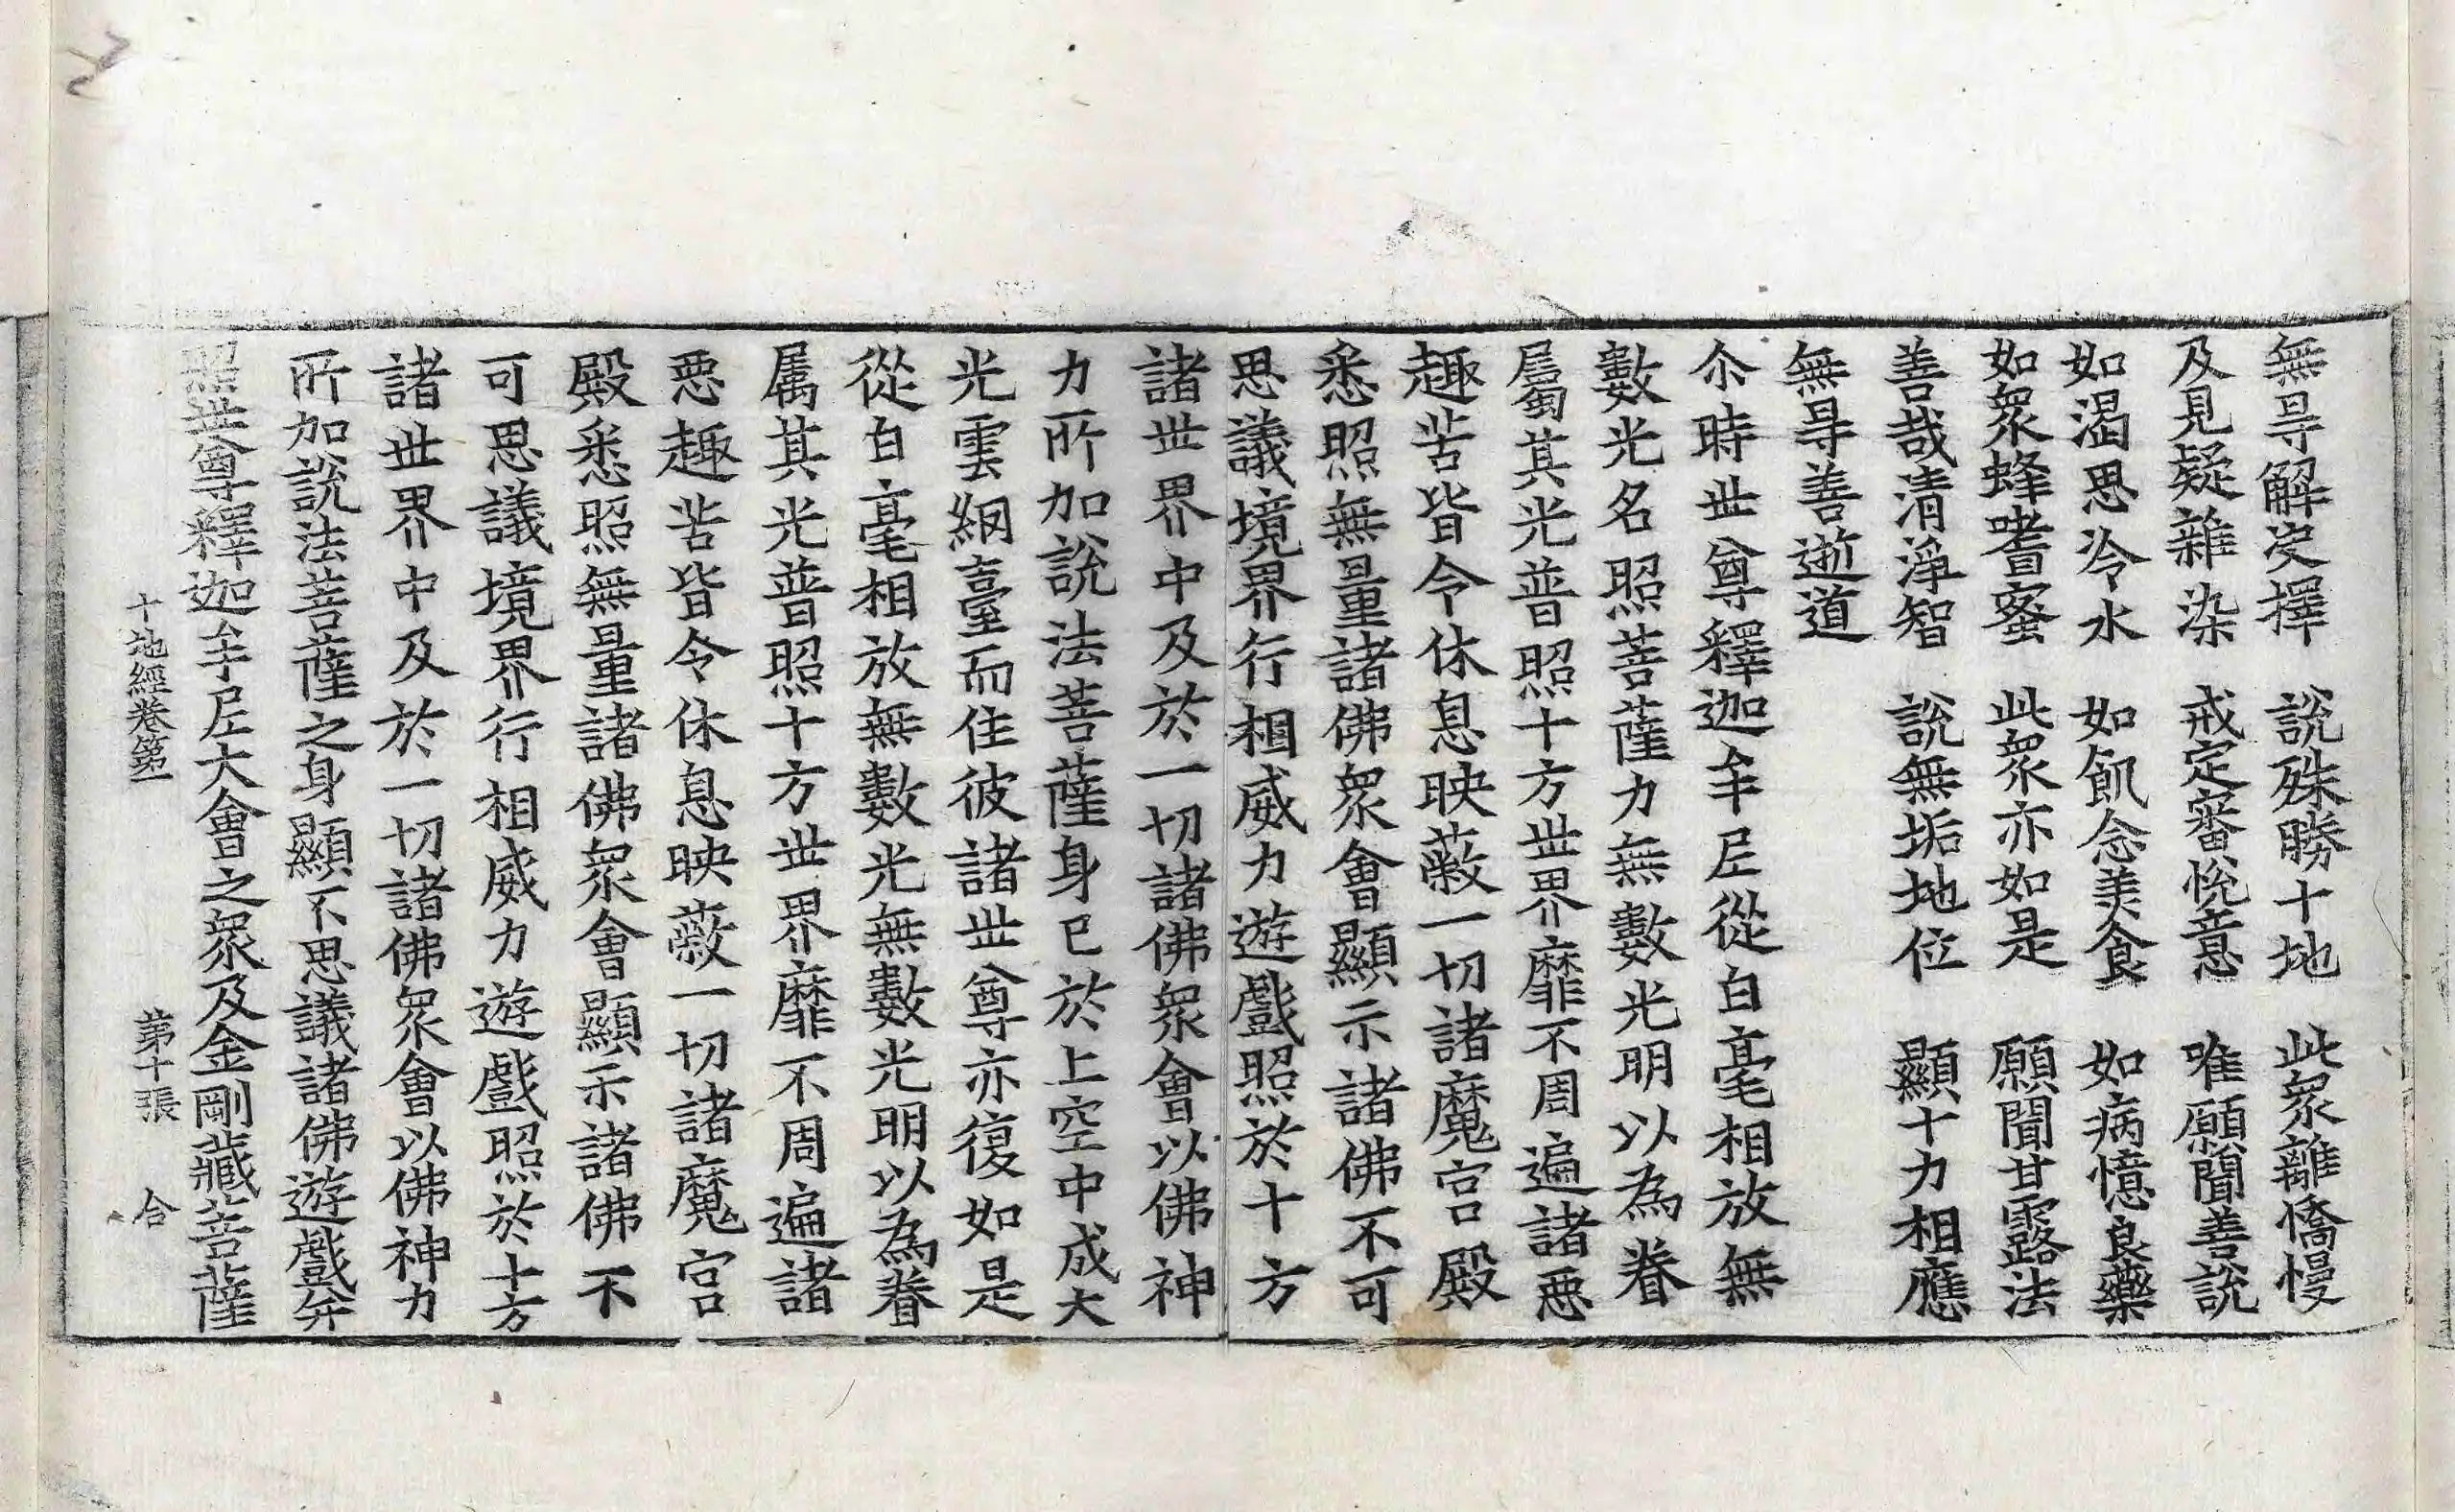 無㝵解決擇　說殊勝十地　此眾離憍慢
及見疑雜染　戒定審恱意　唯願聞善說
如渴思冷水　如飢念美食　如病憶良藥
如眾蜂嗜蜜　此眾亦如是　願聞甘露法
善哉清淨智　說無垢地位　顯十力相應
無㝵善逝道
尒時世尊釋迦牟尼從白毫相放無
數光名照菩薩力無數光明以為眷
屬其光普照十方世界靡不周遍諸惡
趣苦皆令休息映蔽一切諸魔宮殿
悉照無量諸佛眾會顯示諸佛不可
思議境界行相威力遊戲照於十方
諸世界中及於一切諸佛眾會以佛神
力所加說法菩薩身已於上空中成大
光雲網臺而住彼諸世尊亦復如是
從白毫相放無數光無數光明以為眷
属其光普照十方世界靡不周遍諸
惡趣苦皆令休息映蔽一切諸魔宮
殿悉照無量諸佛眾會顯示諸佛不
可思議境界行相威力遊戲照於十方
諸世界中及於一切諸佛眾會以佛神力
所加說法菩薩之身顯不思議諸佛遊戲并
照世尊釋迦牟尼大會之眾及金剛藏菩薩
十地經卷第一　第十張　合